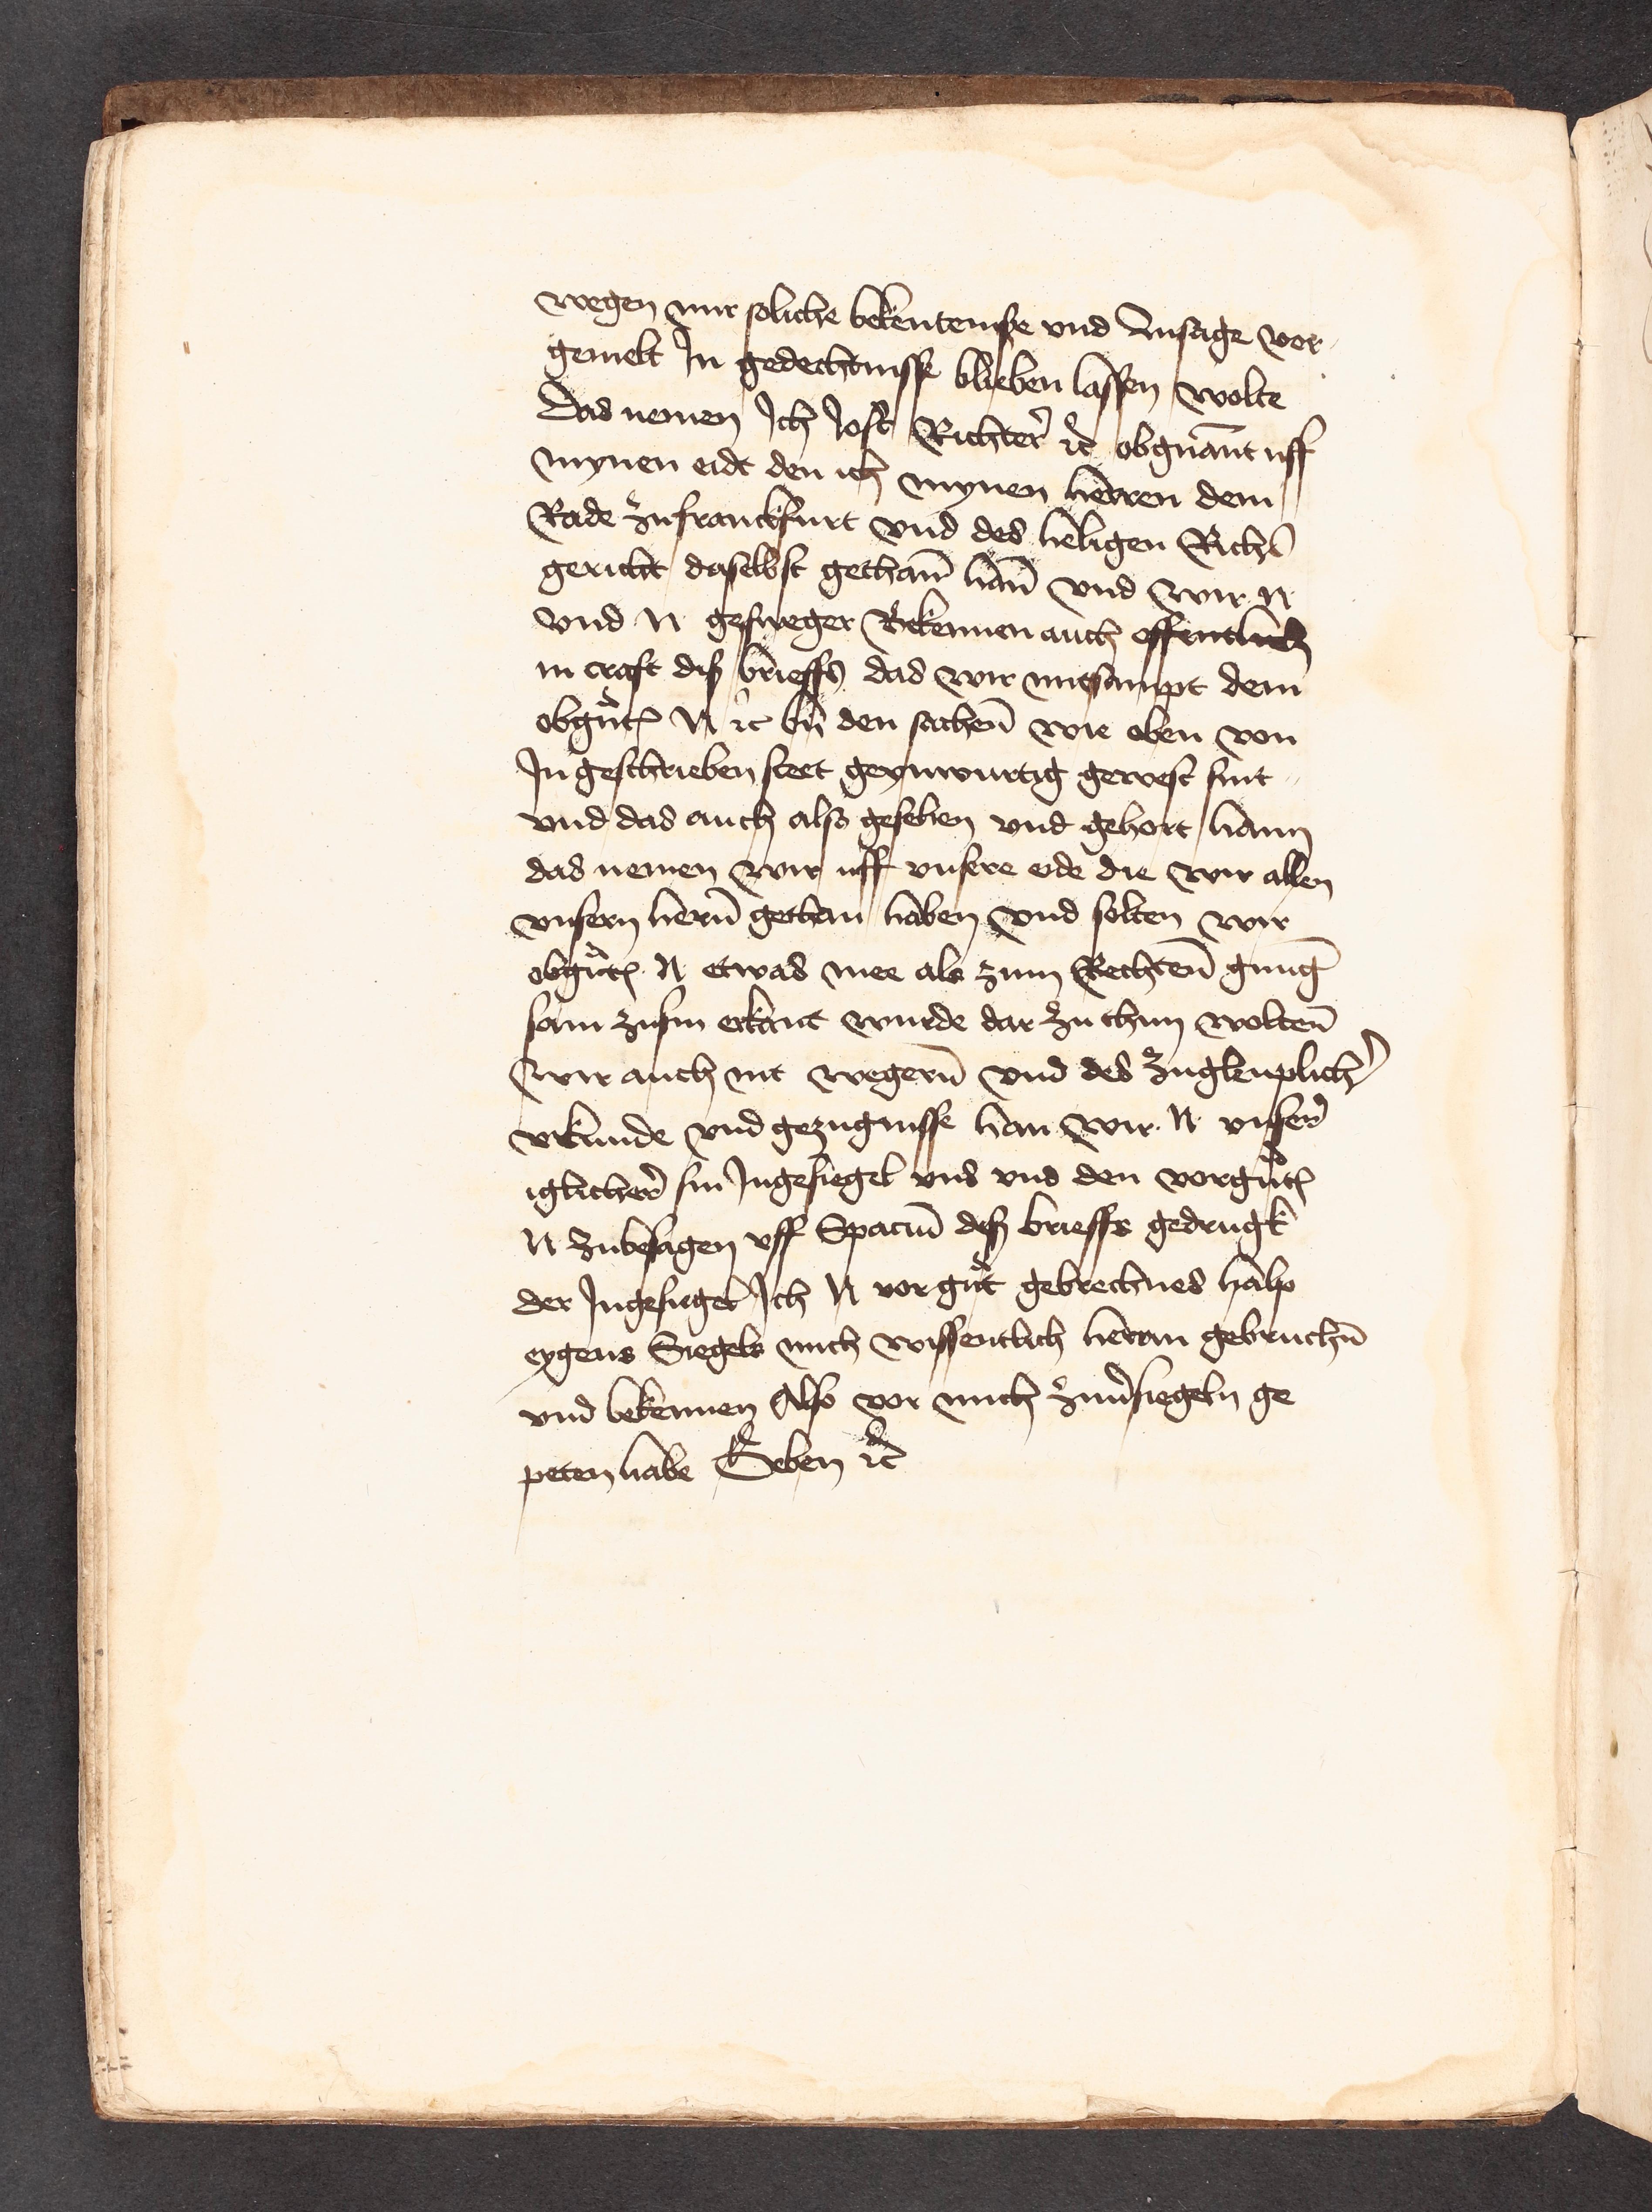 wegen mir soliche bekentenisse vnd Ansage vor
gemelt In gedechtnisse blieben lassen wolte
Das nemen Ich Jost Richter ꝛc obgnant uff
mynen eidt den ich mynen herren dem
Rade zufranckfurt vnd des heligen Richs
gericht daselbst gethan̄ han̄ vnd wir N
vnd N gesweger Bekennen auch offentlich
in craft diß brieffs das wir mitsampt dem
obgn̄t N ꝛc by den sachen̄ wie oben von
In geschrieben steet geynwurtig gewest sint
vnd das auch also gesehen vnd gehort hann
das nemen wir uff vnsere eide die wir allen
vnsern hern̄ gethan haben vnd solten wir
obgn̄t N etwas mee als zum Rechten̄ gnug
sam zusin erkant wurde dar zu thun wolten̄
wir auch nit wegern̄ vnd des zugleuplich
vrkunde vnd gezugnisse han wir N vnser
iglicher sin Ingesiegel vns vnd den vorgn̄t
N zubesagen vff Spacium diß brieffs gedrugkt
der Ingesiegel Ich N vorgn̄t gebrechnes halp
eygens Siegels mich wissentlich heran gebruchn̄
vnd bekennen Also vor mich zuuersiegeln ge
peten habe Geben ꝛc